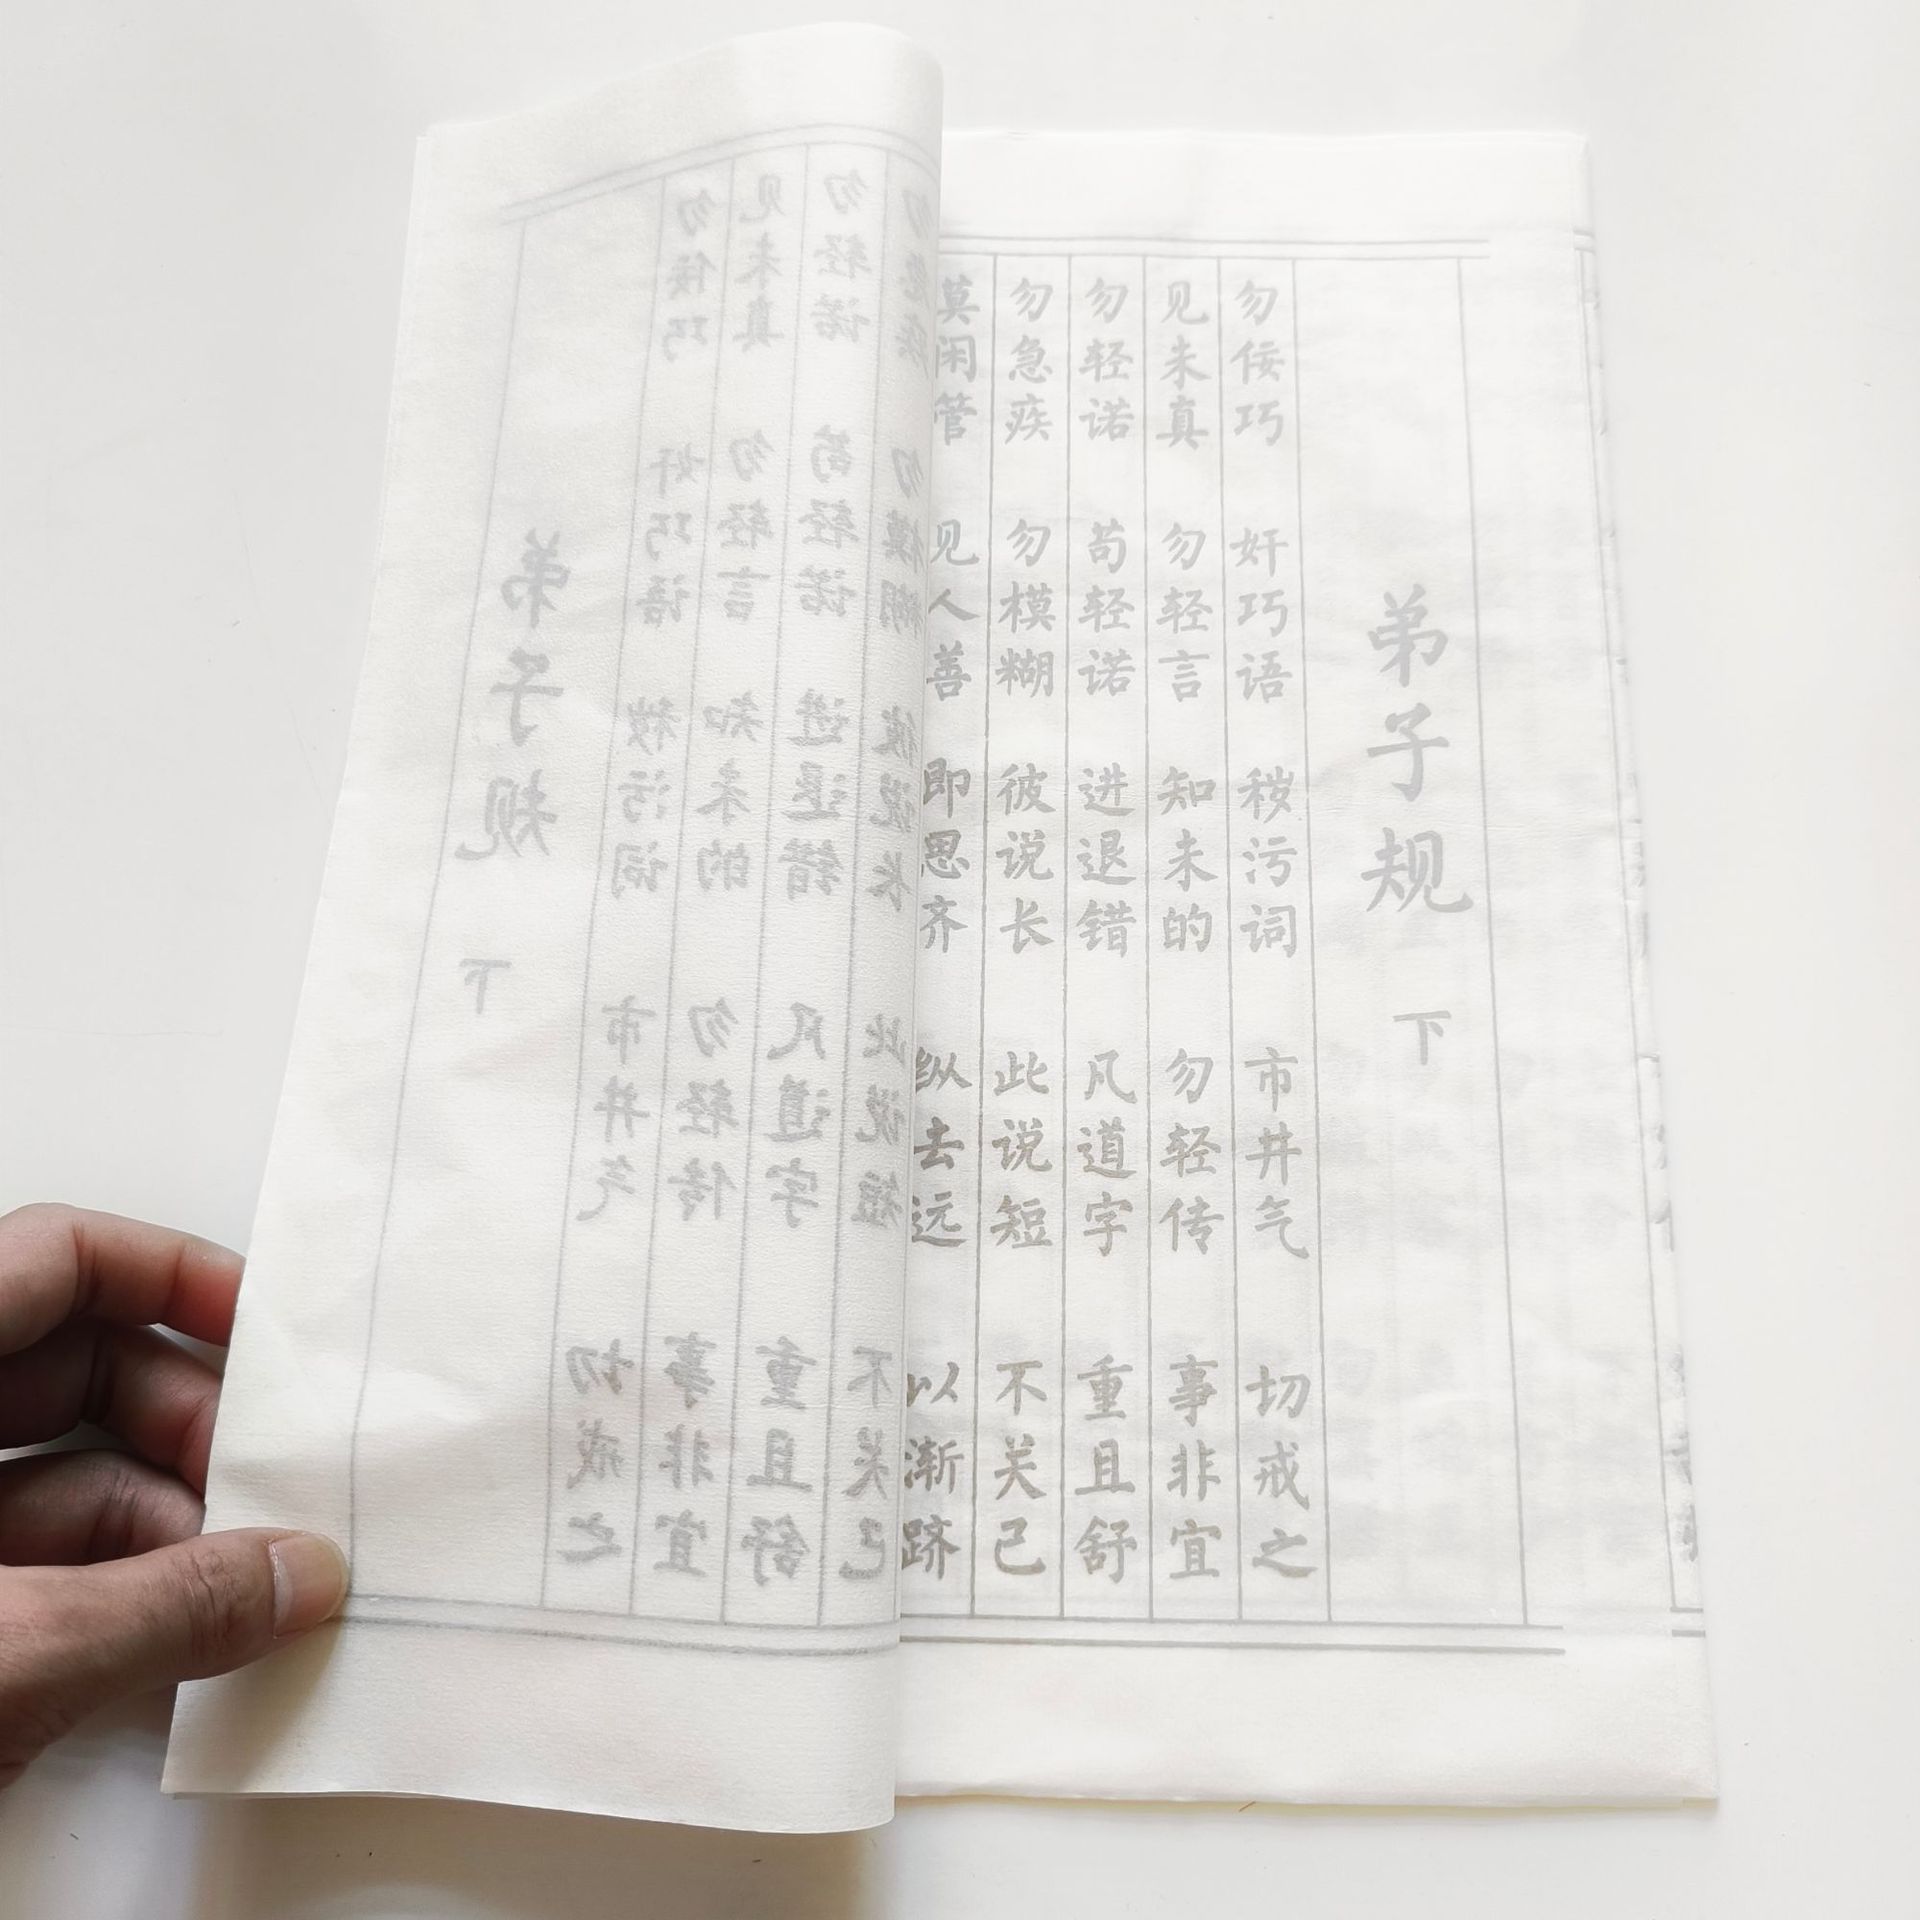 弟子规 下
勿佞巧 奸巧语 秽污词 市井气 切戒之
见未真 勿轻言 知未的 勿轻传 事非宜
勿轻诺 苟轻诺 进退错 凡道字 重且舒
勿急疾 勿模糊 彼说长 此说短 不关己
莫闲管 见人善 即思齐 纵去远 以渐跻
弟子规 下
勿佞巧 奸巧语 秽污词 市井气 切戒之
见未真 勿轻言 知未的 勿轻传 事非宜
勿轻诺 苟轻诺 进退错 凡道字 重且舒
勿急疾 勿模糊 彼说长 此说短 不关己